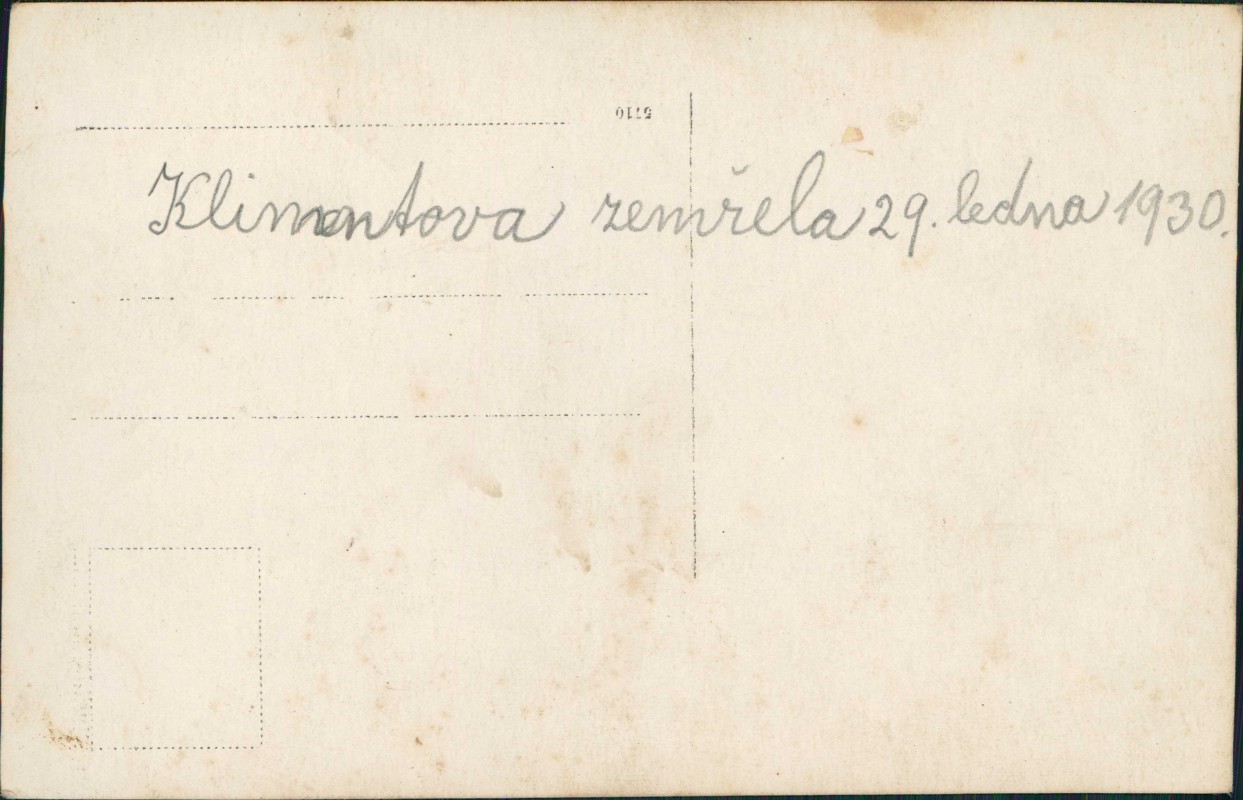 5710
Klimentova zemřela 29. ledna 1930.